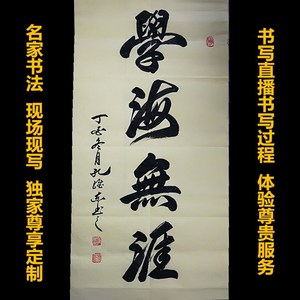 名家书法 现场现写 独家尊享定制
學海無涯
书写直播书写过程 体验尊贵服务